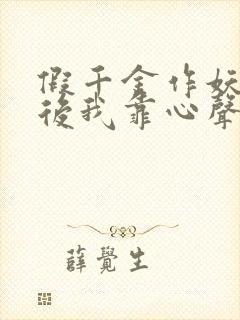 假千金作妖
後我靠心聲
薛覺生